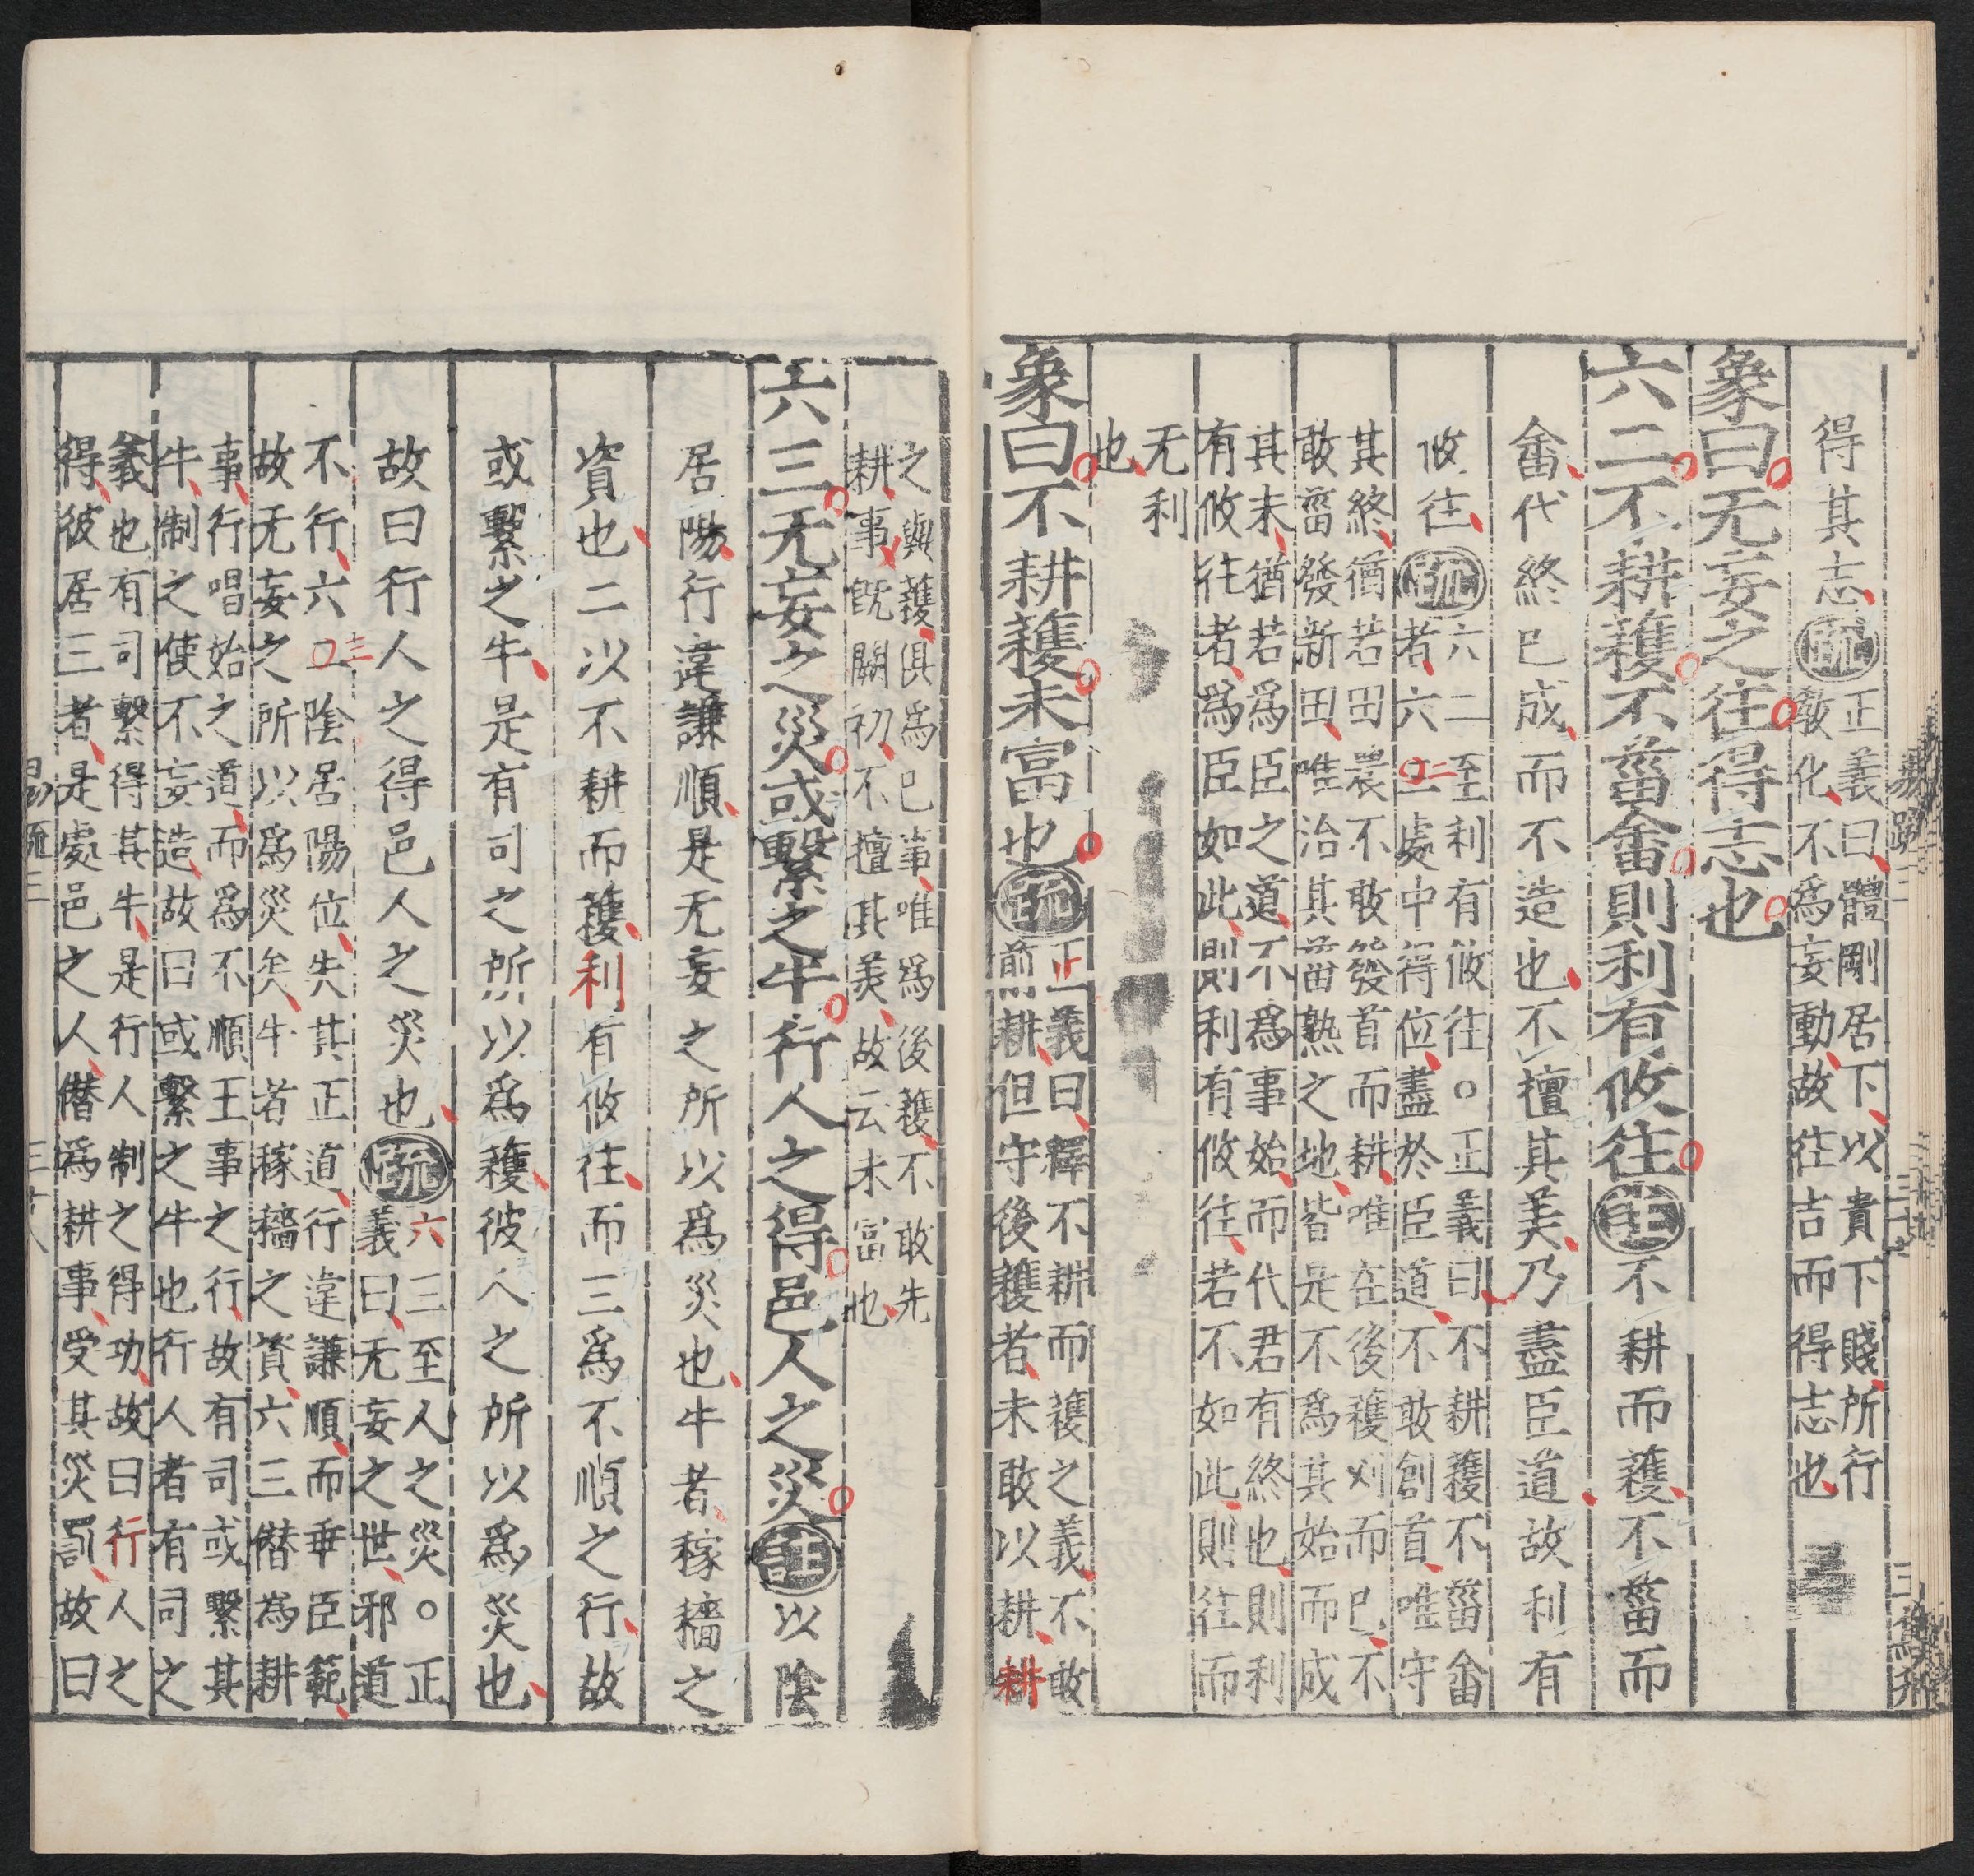 易疏三
得其志疏正義曰體剛居下以貴下賤所行
敎化不爲妄動故往吉而得志也
象曰无妄之往得志也
六二不耕穫不菑畬則利有攸往註不耕而穫不菑而
畬代終已成而不造也不擅其美乃盡臣道故利有
攸往疏六二至利有攸往○正義曰不耕穫不菑畬
者六二處中得位盡於臣道不敢創首唯守
其終猶若田農不敢發首而耕唯在後穫刈而已不
敢菑發新田唯治其菑熟之地皆是不爲其始而成
其末猶若爲臣之道不爲事始而代君有終也則利
有攸往者爲臣如此則利有攸往若不如此則往而
无利
也
象曰不耕穫未富也疏正義曰釋不耕而穫之義不敢
前耕但守後穫者未敢以耕耕
之與穫俱爲已事唯爲後穫不敢先
耕事旣闕初不擅其美故云未富也
六三无妄之災或繫之牛行人之得邑人之災註以陰
居陽行違謙順是无妄之所以爲災也牛者稼穡之
資也二以不耕而穫利有攸往而三爲不順之行故
或繫之牛是有司之所以爲穫彼人之所以爲災也
故曰行人之得邑人之災也疏六三至人之災○正
義曰无妄之世邪道
不行六三陰居陽位失其正道行違謙順而乖臣範
故无妄之所以爲災矣牛者稼穡之資六三僣爲耕
事行唱始之道而爲不順王事之行故有司或繫其
牛制之使不妄造故曰或繫之牛也行人者有司之
義也有司繫得其牛是行人制之得功故曰行人之
得彼居三者是處邑之人僣爲耕事受其災罰故曰
易疏三